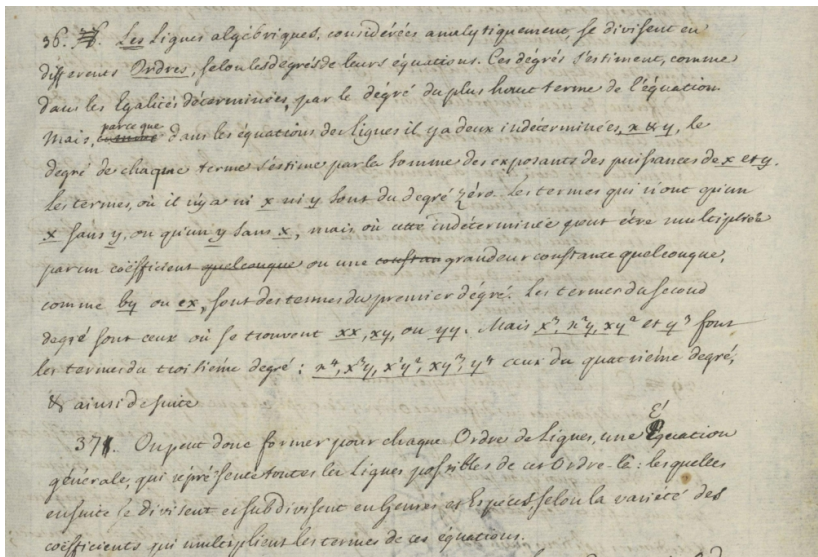 36. Les Lignes algébriques, considérées analytiquement, se divisent en
differens Ordres, selon les degrés de leurs équations. Ces dégrés s'estiment, comme
dans les Egalités déterminées, par le dégré du plus haut terme de l'équation.
Mais, parceque dans les équations des Lignes il y a deux indéterminées, x & y, le
degré de chaque terme s'estime par la somme des exposants des puissances de x et y.
Les termes, où il n'y a ni x ni y sont du degré zéro. Les termes qui n'ont qu'un
x sans y, ou qu'un y sans x, mais où cette indéterminée peut être multipliée
par un coëfficient quelconque ou une constan grandeur constante quelconque,
comme by ou cx, sont des termes du premier dégré. Les termes du second
degré sont ceux où se trouvent xx, xy, ou yy. Mais x³, x²y, xy² et y³ sont
les termes du troisiéme degré : x⁴, x³y, x²y², xy³, y⁴ ceux du quatriéme degré,
& ainsi de suite
37. On peut donc former pour chaque Ordre de Lignes, une Équation
générale, qui représente toutes les Lignes possibles de cet Ordre-là : lesquelles
ensuite se divisent et subdivisent en Genres et Espèces, selon la varieté des
coëfficients qui multiplient les termes de ces équations.